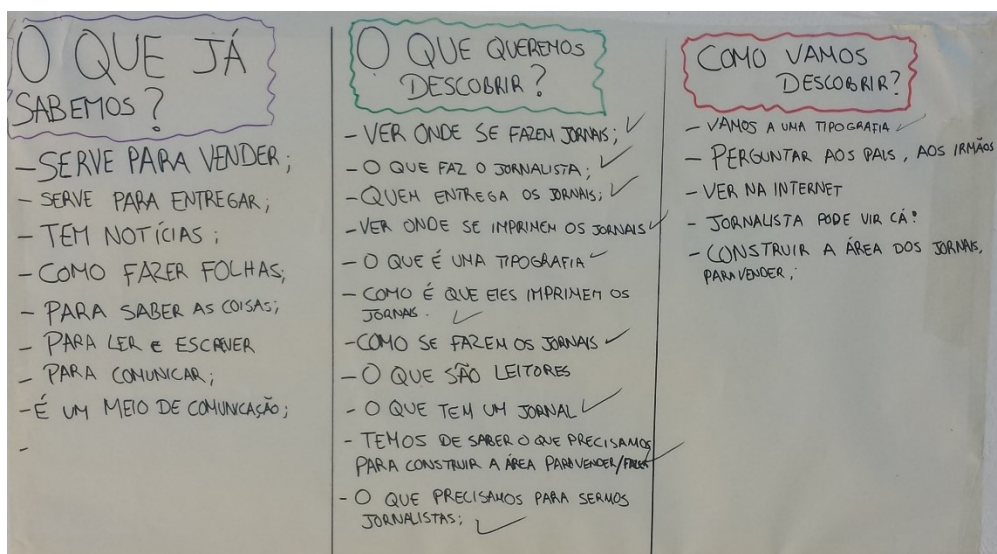 O QUE JÁ
SABEMOS?
- SERVE PARA VENDER;
- SERVE PARA ENTREGAR;
- TEM NOTÍCIAS;
- COMO FAZER FOLHAS;
- PARA SABER AS COISAS;
- PARA LER E ESCREVER
- PARA COMUNICAR;
- É UM MEIO DE COMUNICAÇÃO;
-
O QUE QUEREMOS
DESCOBRIR?
- VER ONDE SE FAZEM JORNAIS; ✓
- O QUE FAZ O JORNALISTA; ✓
- QUEM ENTREGA OS JORNAIS; ✓
- VER ONDE SE IMPRIMEM OS JORNAIS ✓
- O QUE É UMA TIPOGRAFIA ✓
- COMO É QUE ELES IMPRIMEM OS
JORNAIS. ✓
- COMO SE FAZEM OS JORNAIS ✓
- O QUE SÃO LEITORES
- O QUE TEM UM JORNAL ✓
- TEMOS DE SABER O QUE PRECISAMOS
PARA CONSTRUIR A ÁREA PARA VENDER/FAZER ✓
- O QUE PRECISAMOS PARA SERMOS
JORNALISTAS; ✓
COMO VAMOS
DESCOBRIR?
- VAMOS A UMA TIPOGRAFIA ✓
- PERGUNTAR AOS PAIS, AOS IRMÃOS
- VER NA INTERNET
- JORNALISTA PODE VIR CÁ?
- CONSTRUIR A ÁREA DOS JORNAIS,
PARA VENDER;